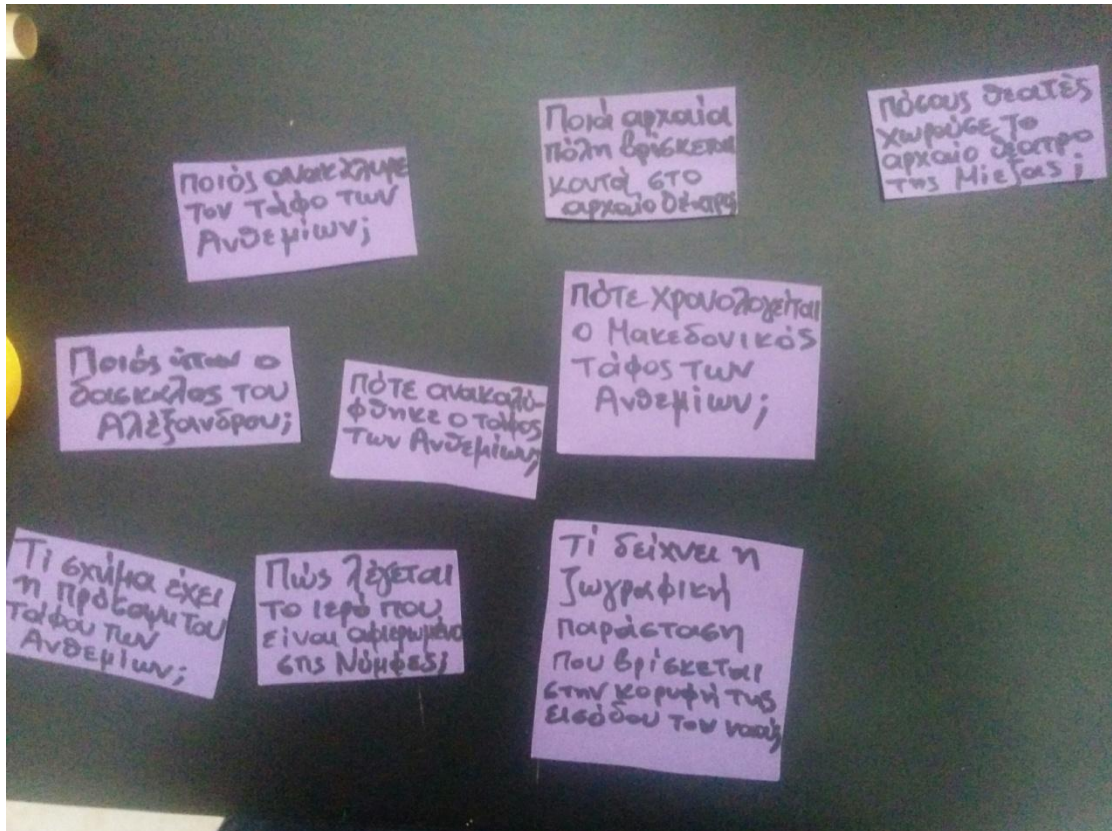 Ποιός ανακάλυψε
τον τάφο των
Ανθεμίων;
Ποιά αρχαία
πόλη βρίσκεται
κοντά στο
αρχαίο θέατρο
πόσους θεατές
χωρούσε το
αρχαίο θέατρο
της Μίεζας;
Ποιός ήταν ο
δάσκαλος του
Αλέξανδρου;
πότε ανακαλύ-
φθηκε ο τάφος
των Ανθεμίων;
πότε χρονολογείται
ο Μακεδονικός
τάφος των
Ανθεμίων;
Τί σχήμα έχει
η πρόσοψη του
τάφου των
Ανθεμίων;
Πώς λέγεται
το ιερό που
είναι αφιερωμένο
στις Νύμφες;
Τί δείχνει η
ζωγραφική
παράσταση
που βρίσκεται
στην κορυφή της
εισόδου του ναού;